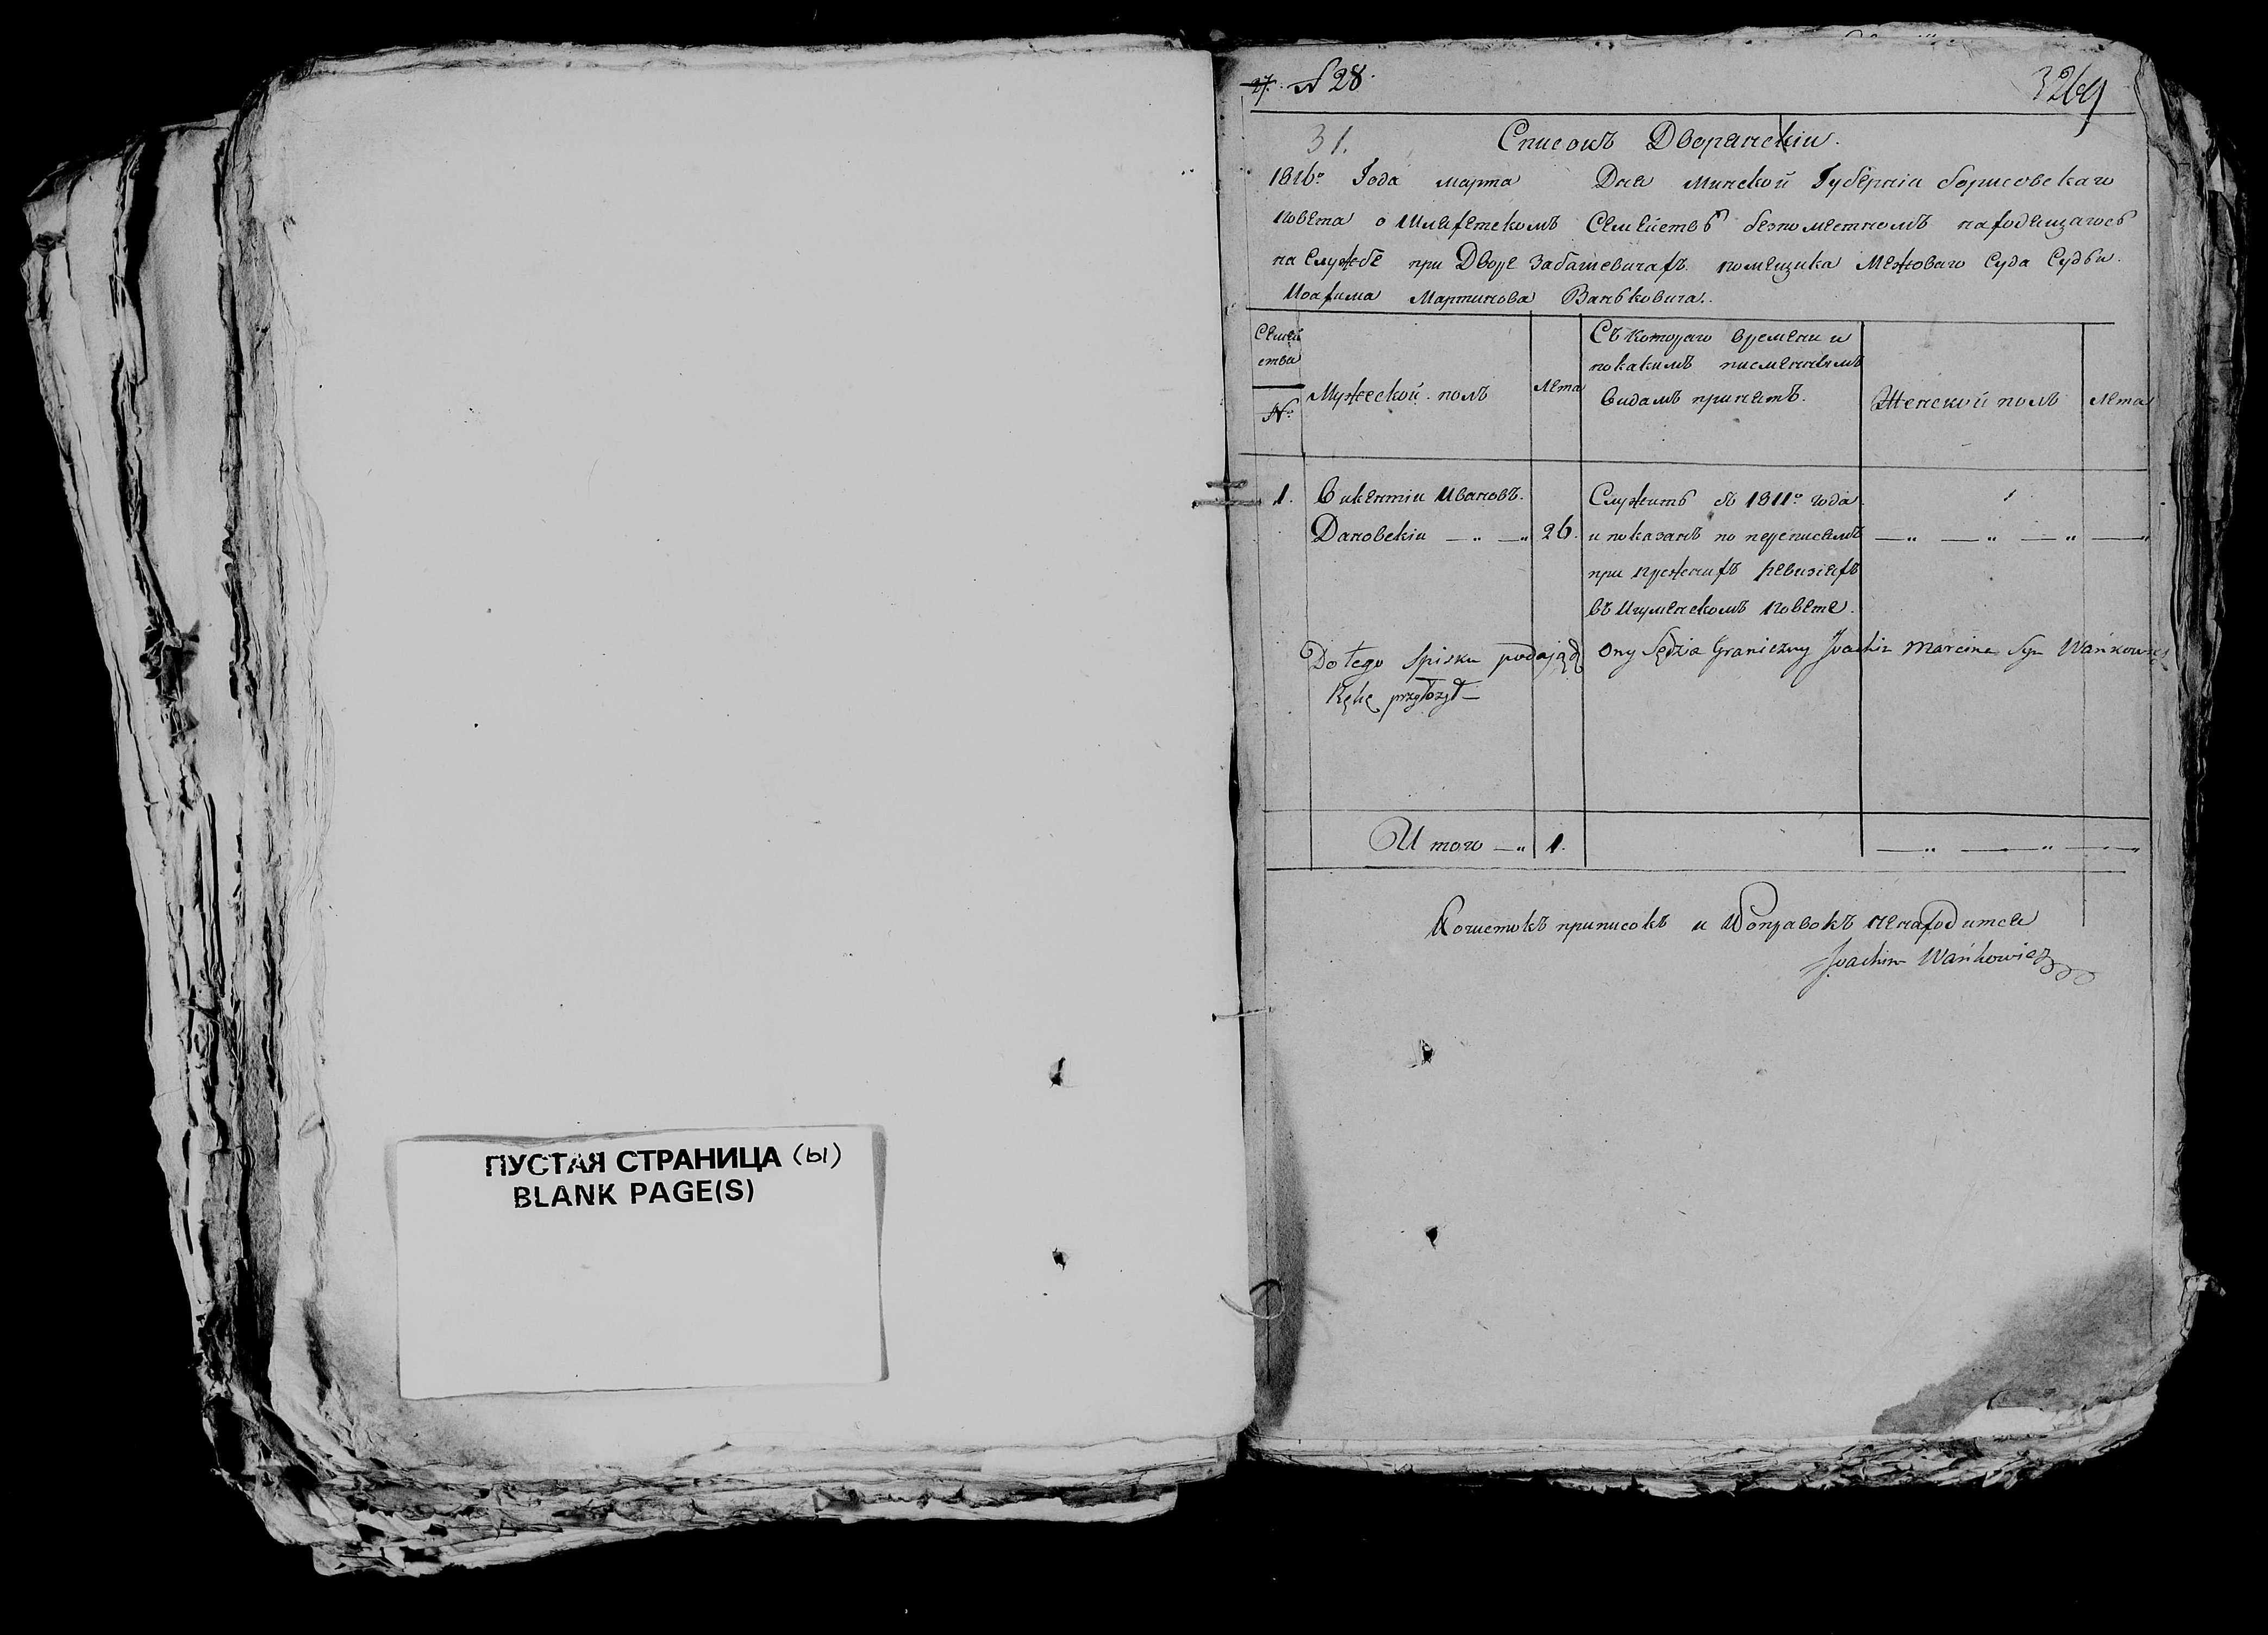 ПУСТАЯ СТРАНИЦА (ы)
BLANK PAGE(S)
27. N 28.
3269
31. Списокъ Дворянскіи.
1816го Года марта Дня Минской Губерніи борисовскаго
повета о Шляхетскомъ Семействѣ безпоместномъ находящагось
на Службе при Дворе Забашевичахъ помещика Межоваго Суда Судьи
Иоахима Мартинова Ваньковича.
Семей
ства
N:
Мужеской полъ
Лета
Съ котораго времени и
по какимъ писменнымъ
видамъ принятъ.
Женской полъ
Лета
1. Викентіи Ивановъ.
Дановскіи 26.
Служитъ съ 1811го года
и показанъ по переписямъ
при прежнихъ Ревизіяхъ
въ Игуменскомъ повете.
Do tego Spisku podający ony Sędzia Graniczny Joachim Marcina Syn Wańkowicz
Rękę przyłożył
Итого 1.
Почистокъ приписокъ и Поправокъ ненаходится
Joachim Wańkowicz